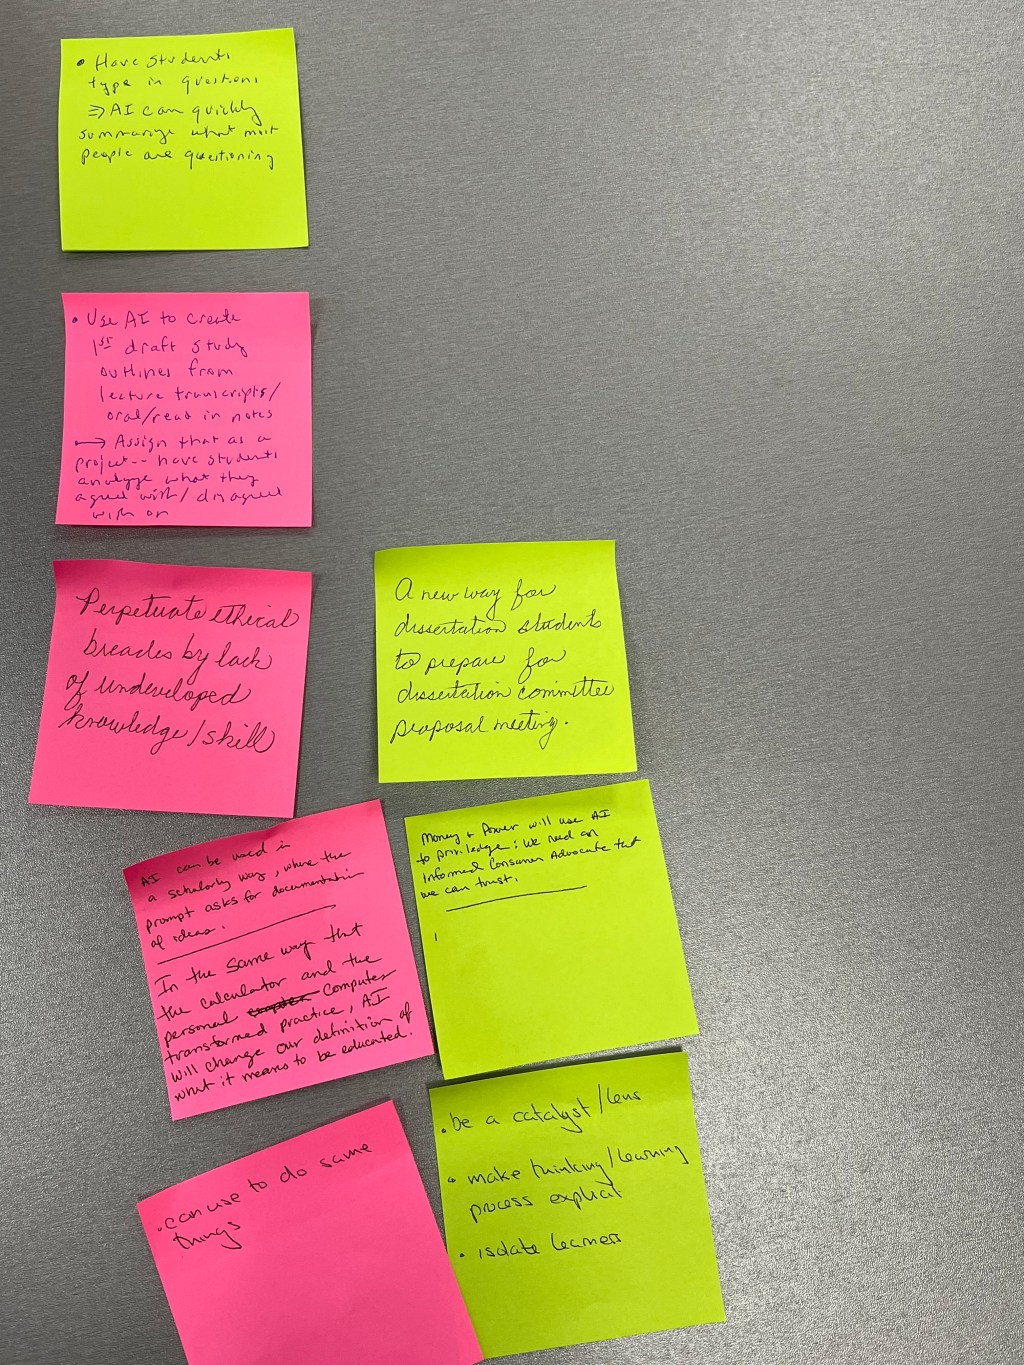 • Have students
type in questions
⇒ AI can quickly
summarize what most
people are questioning
• Use AI to create
1st draft study
outlines from
lecture transcripts/
oral/read in notes
→ Assign that as a
project -- have students
analyze what they
agreed with/disagreed
with on
Perpetuate ethical
breaches by lack
of undeveloped
knowledge/skill
A new way for
dissertation students
to prepare for
dissertation committee
proposal meeting.
AI can be used in
a scholarly way, where the
prompt asks for documentation
of ideas.
In the same way that
the calculator and the
personal computer
transformed practice, AI
will change our definition of
what it means to be educated.
Money + Power will use AI
to priviledge; we need an
informed Consumer Advocate that
we can trust.
• can use to do same
things
• be a catalyst/lens
• make thinking/learning
process explicit
• isolate learners